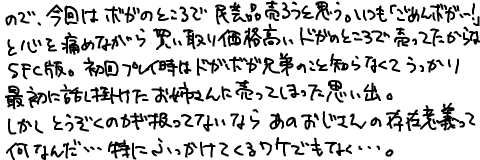 ので、今回はボガのところで民芸品売ろうと思う。いつも「ごめんボガー!」
と心を痛めながら買い取り価格高いドガのところで売ってたからな
SFC版。初回プレイ時はドガボガ兄弟のこと知らなくてうっかり
最初に話し掛けたお姉さんに売ってしまった思い出。
しかしとうぞくのカギ扱ってないならあのおじさんの存在意義って
何なんだ…特にふっかけてくるワケでもなく…。